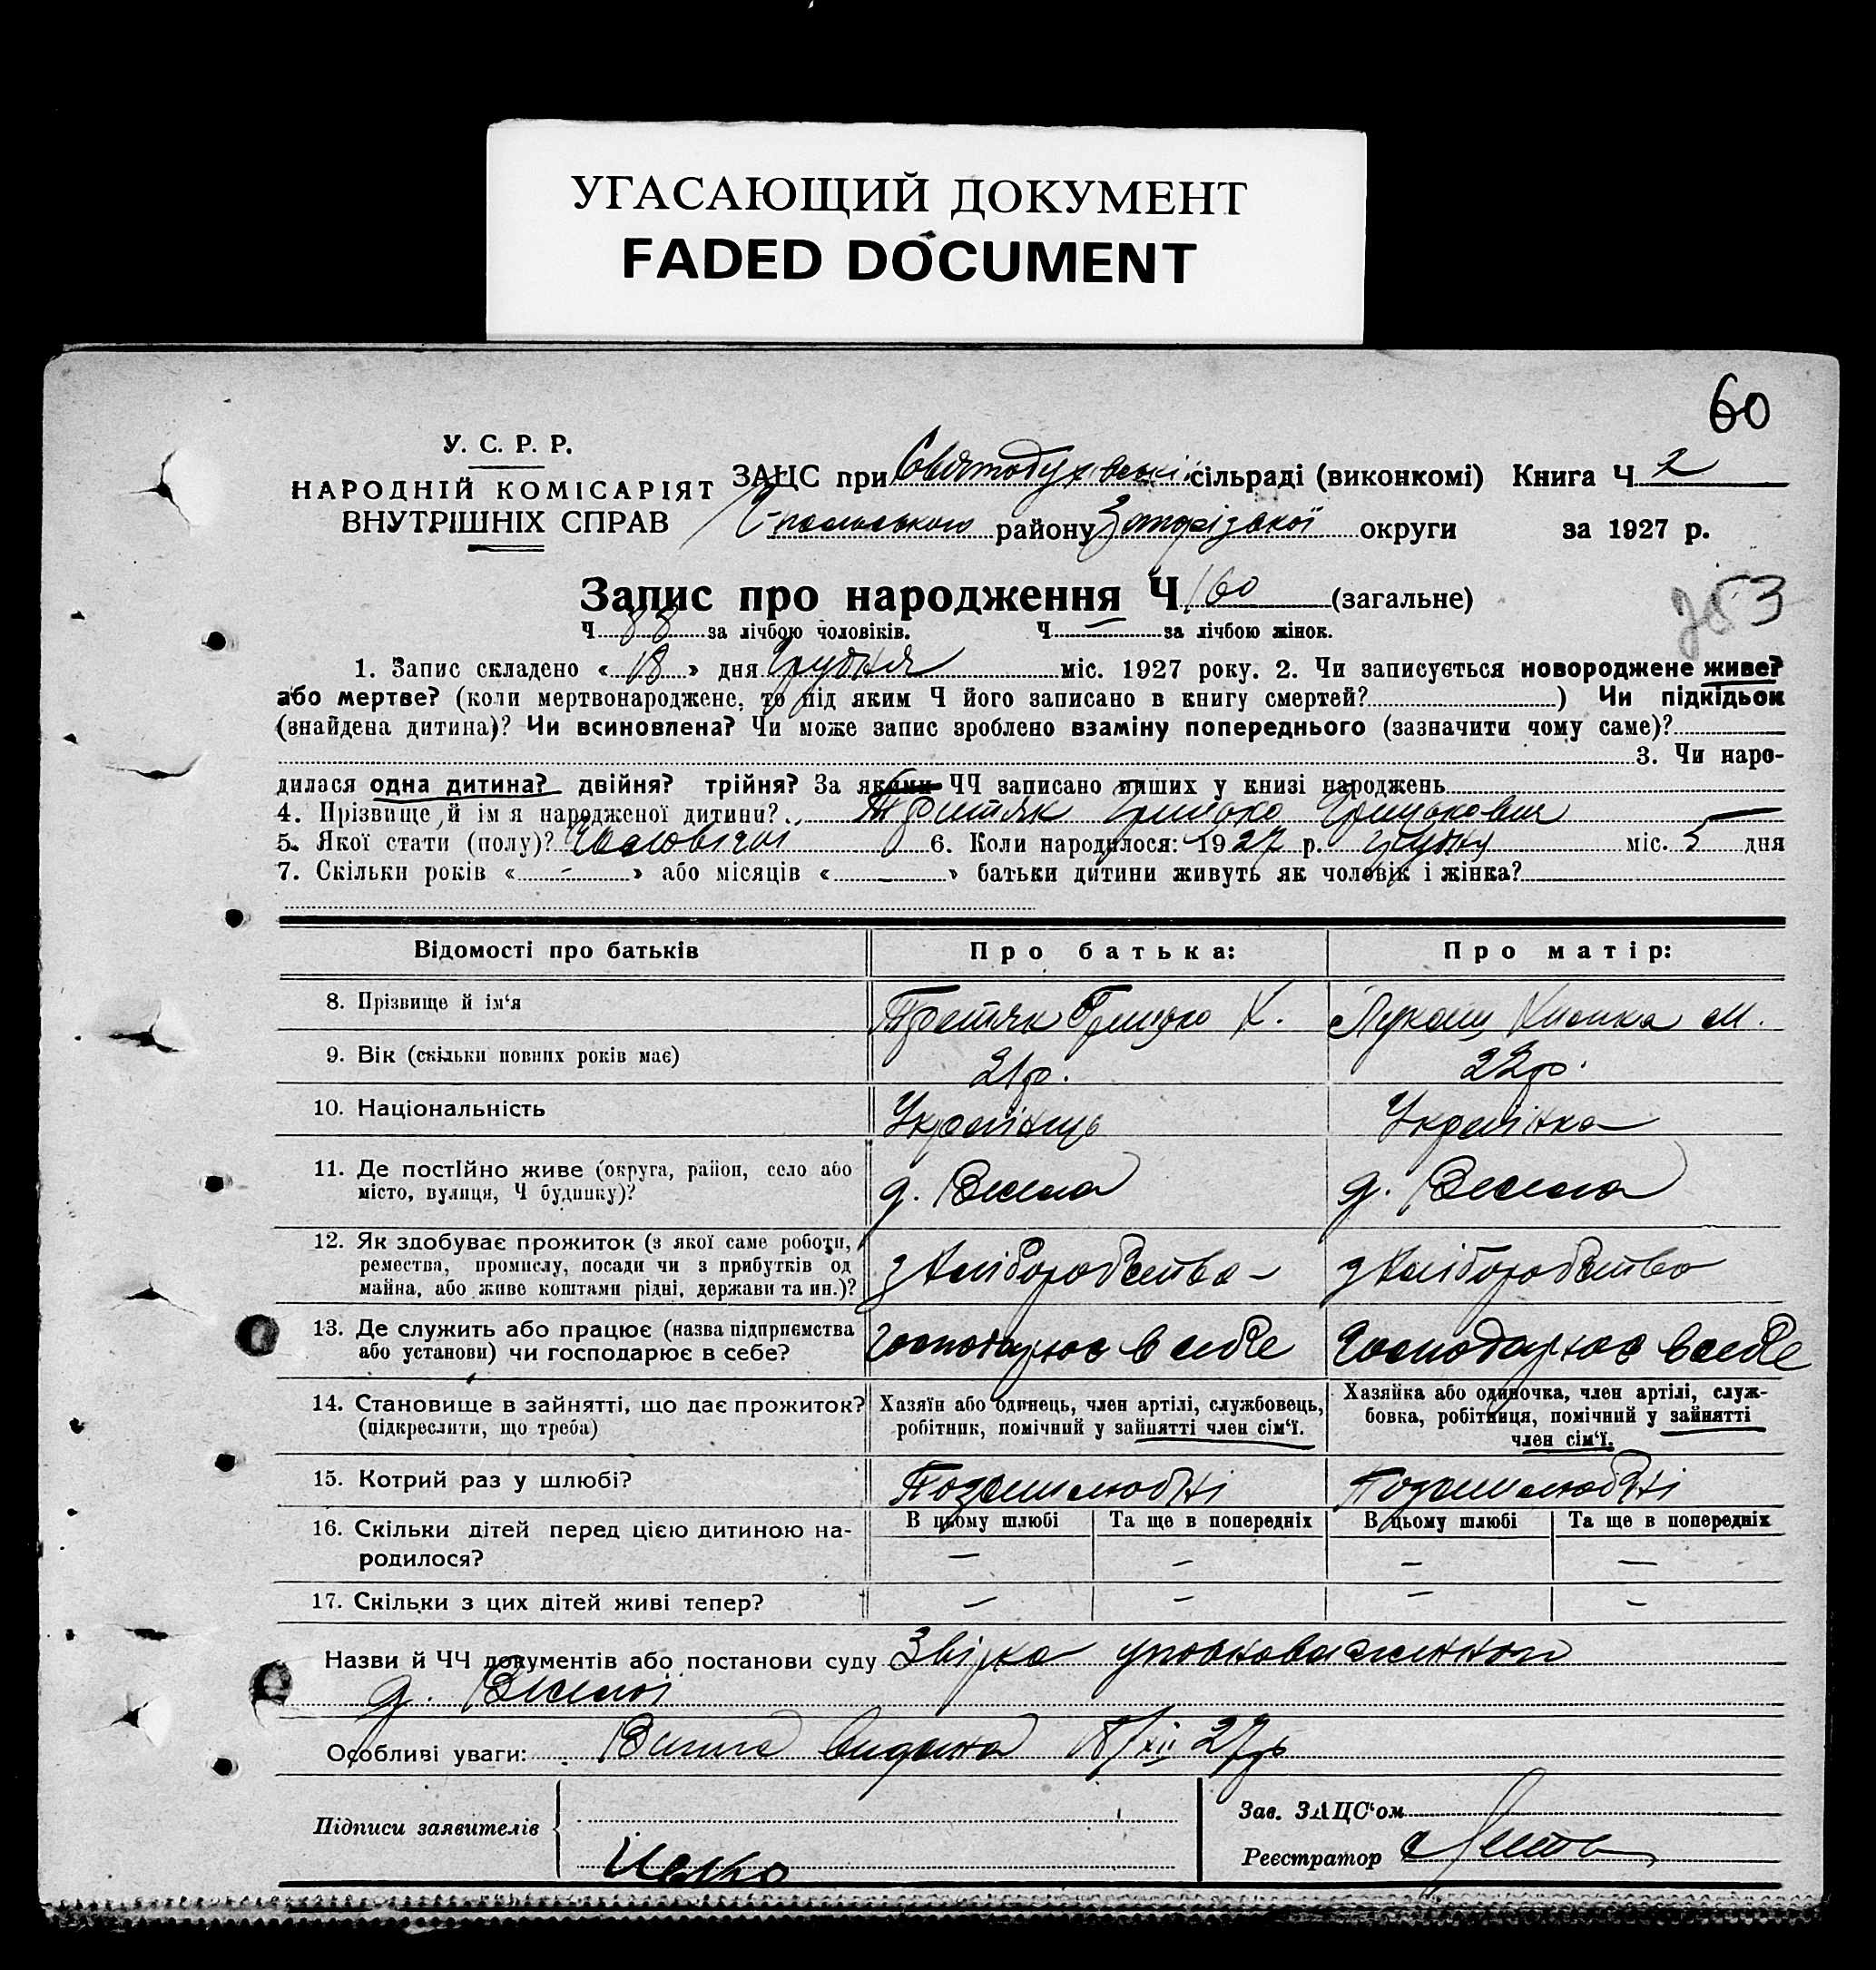 УГАСАЮЩИЙ ДОКУМЕНТ
FADED DOCUMENT
60
У. С. Р. Р.
НАРОДНІЙ КОМІСАРІЯТ
ВНУТРІШНІХ СПРАВ
ЗАЦС при Святодухівські сільраді (виконкомі) Книга Ч 2
району Запорізької округи за 1927 р.
Запис про народження Ч 160 (загальне)
353
Ч 88 за лічбою чоловіків. Ч — за лічбою жінок.
1. Запис складено « 18 » дня Грудня міс. 1927 року. 2. Чи записується новороджене живе?
або мертве? (коли мертвонароджене, то під яким Ч його записано в книгу смертей? ) Чи підкідьок
(знайдена дитина)? Чи всиновлена? Чи може запис зроблено взаміну попереднього (зазначити чому саме)?
3. Чи наро-
дилася одна дитина? двійня? трійня? За якими ЧЧ записано инших у книзі народжень
4. Прізвище й ім'я народженої дитини? Третяк Грицько Грицькович
5. Якої стати (полу)? Чоловічої 6. Коли народилося: 1927 р. грудня міс. 5 дня
7. Скільки років « - » або місяців « - » батьки дитини живуть як чоловік і жінка?
Відомості про батьків Про батька: Про матір:
8. Прізвище й ім'я Третяк Грицько Х. Лукаш М.
9. Вік (скільки повних років має) 21 р. 22 р.
10. Національність Українець Українка
11. Де постІйно живе (округа, район, село або
місто, вулиця, Ч будинку)? д. Весела д. Весела
12. Як здобуває прожиток (з якої саме роботи,
ремества, промислу, посади чи з прибутків од
майна, або живе коштами рідні, держави та ин.)? з хліборобства - з хліборобства
13. Де служить або працює (назва підприємства
або установи) чи господарює в себе? господарює в себе господарює в себе
14. Становище в зайнятті, що дає прожиток?
(підкреслити, що треба)
Хазяїн або одинець, член артілі, службовець,
робітник, помічний у зайнятті член сім'ї.
Хазяйка або одиночка, член артілі, служ-
бовка, робітниця, помічний у зайнятті
член сім'ї.
15. Котрий раз у шлюбі? Позашлюбні Позашлюбні
16. Скільки дітей перед цією дитиною на-
родилося?
В цьому шлюбі Та ще в попередніх В цьому шлюбі Та ще в попередніх
— — — —
17. Скільки з цих дітей живі тепер? — — — —
Назви й ЧЧ документів або постанови суду Звірка уповноваженног
д. Веселої
Особливі уваги: видана 18/XII 27 р
Підписи заявителів
Зав. ЗАЦС'ом
Реєстратор